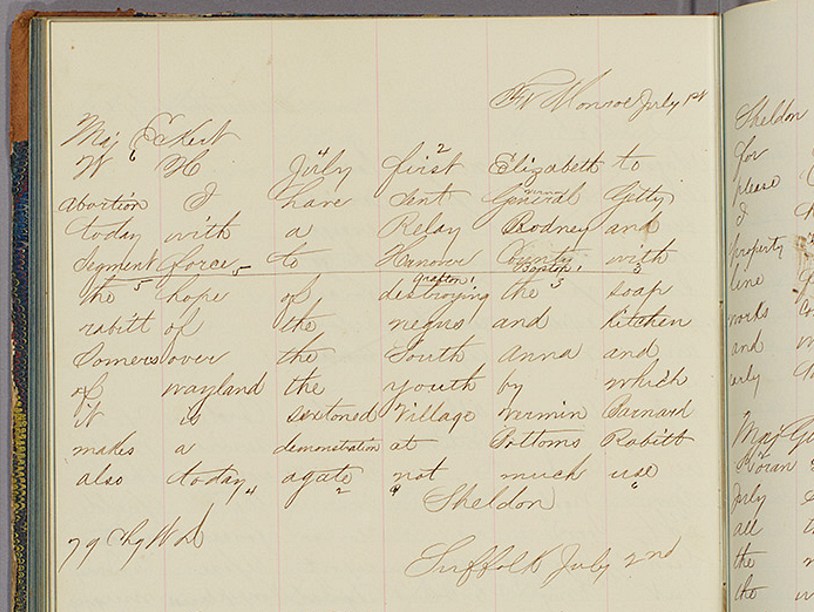 Ft Monroe July 1st
Maj Eckert
W 6 H July 4 first 2 Elizabeth to
abortion I have sent General Gitty
today with a Relay Rodney and
Segment force 5 to Hanover County with
the 5 hope of destroying grafton 1 the 3 Boston 1 soap 3
rabitt of the negus and Kitchen
Somers over the South Anna and
of wayland the youth by which
it is sextoned Village vermin Barnard
makes a demonstration at Bottoms Rabitt
also today 4 agate 2 not 9 much use 6
Sheldon
79 Chg W D
Suffolk July 2nd
Sheldon
for
please
I
property
line
works
and
early
Maj Ge
July
all
the
the